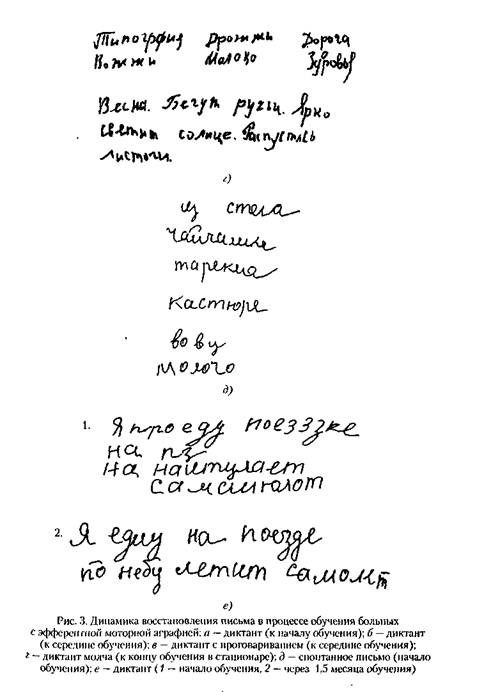 Типогрфия Дрожжи Дорога
Вожжи Малоко Зуровье
Весна. Бегут ручьи. Ярко
светит солнце. Распустлсь
листочи.
г)
из стела
чайчашке
тарекиа
кастюре
вову
молочо
д)
1. Я проеду поеззке
на пз
на наитулает
самсилолот
2. Я еду на поезде
по небу летит самолт
е)
Рис. 3. Динамика восстановления письма в процессе обучения больных
с эфферентной моторной аграфией: а — диктант (к началу обучения); б — диктант
(к середине обучения); в — диктант с проговариванием (к середине обучения);
г — диктант молча (к концу обучения в стационаре); д — спонтанное письмо (начало
обучения); е — диктант (1 — начало обучения, 2 — через 1,5 месяца обучения)